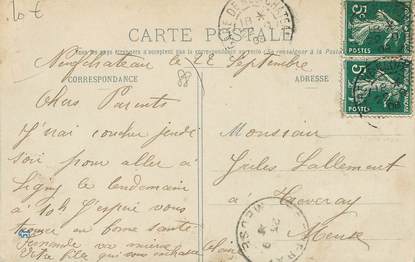 10 €
CARTE POSTALE
Tous les pays étrangers n'acceptent pas la correspondance au recto (Se renseigner à la Poste)
Neufchateau le 22 Septembre
CORRESPONDANCE
ADRESSE
Chers Parents
J'irai coucher jeudi
soir pour aller à
Ligny le lendemain
à 10h J'espère vous
trouver en bonne santé
Fernande va mieux
Votre fille qui vous embrasse
Monsieur
Jules Lallement
à Tréveray
Meuse
5c
POSTES
5c
POSTES
MEUSE